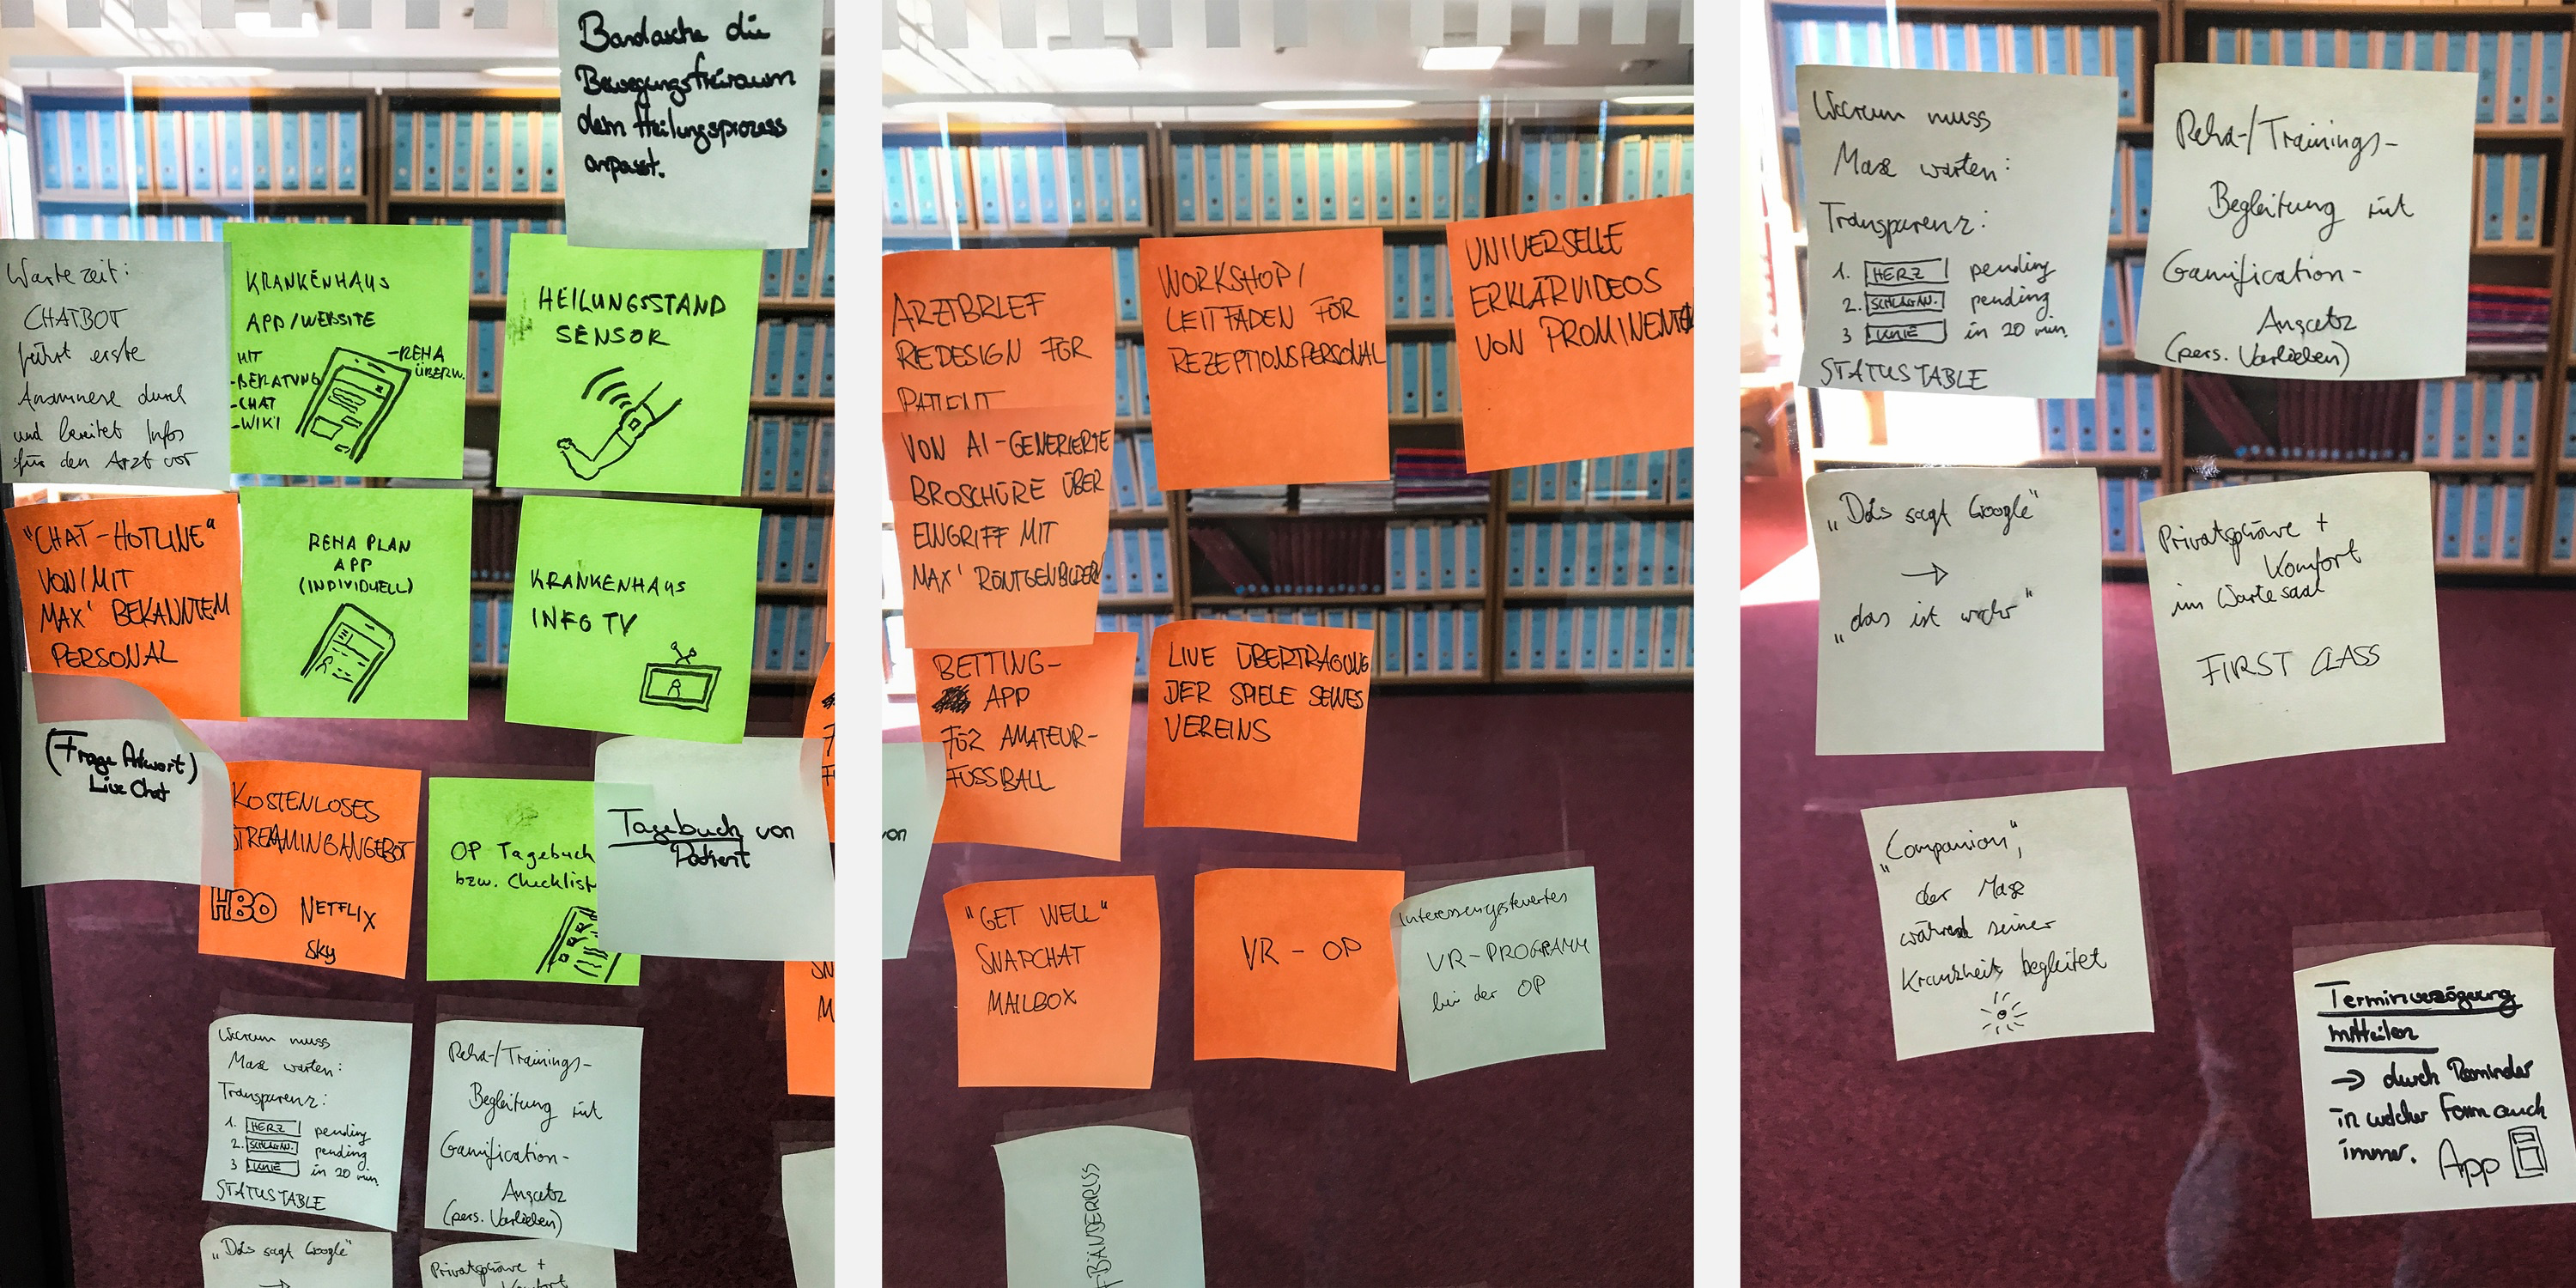 Bandasche die
Bewegungsfreiraum
dem Heilungsprozess
anpasst.
Wartezeit:
CHATBOT
führt erste
Anamnese durch
und bereitet Infos
für den Arzt vor
KRANKENHAUS
APP/WEBSITE
MIT
-BERATUNG
-CHAT
-WIKI
-REHA
ÜBERW.
HEILUNGSSTAND
SENSOR
"CHAT-HOTLINE"
VON/MIT
MAX' BEKANNTEM
PERSONAL
REHA PLAN
APP
(INDIVIDUELL)
KRANKENHAUS
INFO TV
(Frage Antwort)
Live Chat
KOSTENLOSES
STREAMINGANGEBOT
HBO NETFLIX
Sky
OP Tagebuch
bzw. Checklist
Tagebuch von
Patient
Warum muss
Max warten:
Transparenz:
1. HERZ pending
2. SCHLAGAN. pending
3 KNIE in 20 min.
STATUSTABLE
Reha-/Trainings-
Begleitung mit
Gamification-
Ansatz
(pers. Vorlieben)
"Das sagt Google"
Privatsphäre +
Komfort
ARZTBRIEF
REDESIGN FÜR
PATIENT
VON AI-GENERIERTE
BROSCHÜRE ÜBER
EINGRIFF MIT
MAX' RÖNTGENBILDERN
WORKSHOP/
LEITFADEN FÜR
REZEPTIONSPERSONAL
UNIVERSELLE
ERKLÄRVIDEOS
VON PROMINENTEN
BETTING-
APP
FÜR AMATEUR-
FUSSBALL
LIVE ÜBERTRAGUNG
DER SPIELE SEINES
VEREINS
von
"GET WELL"
SNAPCHAT
MAILBOX
VR - OP
Interessengesteuertes
VR-PROGRAMM
bei der OP
BÄNDERRISS
Warum muss
Max warten:
Transparenz:
1. HERZ pending
2. SCHLAGAN. pending
3 KNIE in 20 min.
STATUSTABLE
Reha-/Trainings-
Begleitung mit
Gamification-
Ansatz
(pers. Vorlieben)
"Das sagt Google"
→
"das ist wahr"
Privatsphäre +
Komfort
im Wartesaal
FIRST CLASS
"Companion",
der Max
während seiner
Krankheit begleitet
Terminverzögerung
mitteilen
→ durch Reminder
in welcher Form auch
immer. App